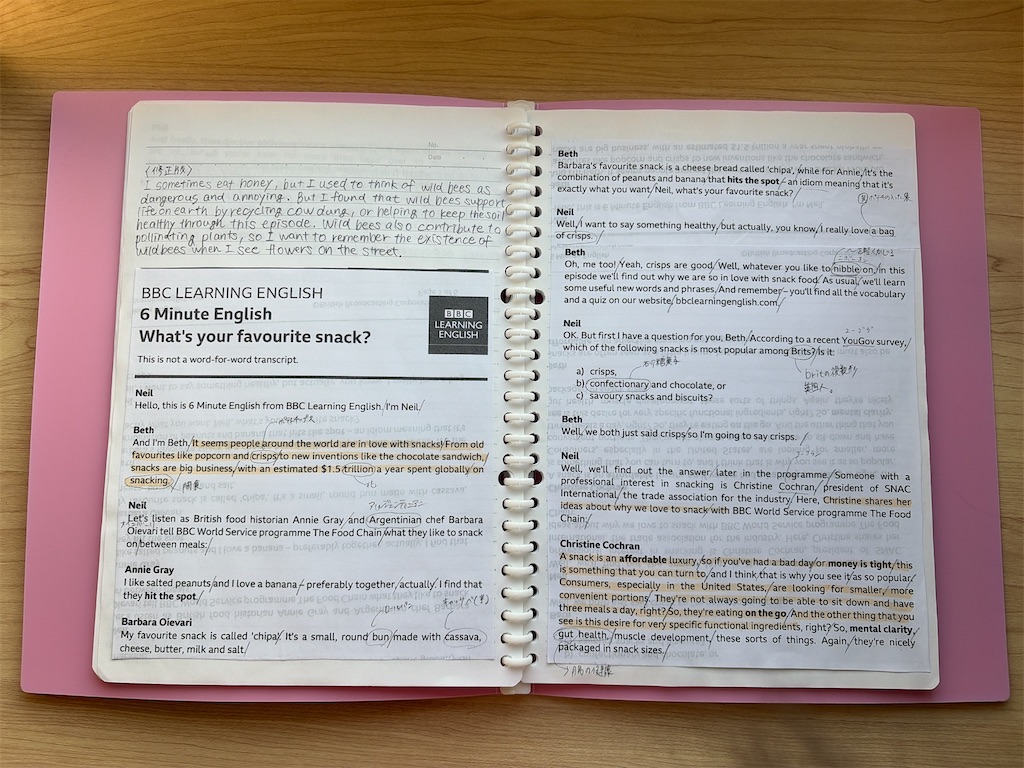 No.
Date
〈修正版〉
I sometimes eat honey, but I used to think of wild bees as
dangerous and annoying. But I found that wild bees support
life on earth by recycling cow dung, or helping to keep the soil
healthy through this episode. Wild bees also contribute to
pollinating plants, so I want to remember the existence of
wild bees when I see flowers on the street.
BBC LEARNING ENGLISH
6 Minute English
What's your favourite snack?
This is not a word-for-word transcript.
BBC
LEARNING
ENGLISH
Neil
Hello, this is 6 Minute English from BBC Learning English. I'm Neil.
Beth
And I'm Beth. It seems people around the world are in love with snacks! From old
favourites like popcorn and crisps to new inventions like the chocolate sandwich,
snacks are big business, with an estimated $1.5 trillion a year spent globally on
snacking.
間食
兆
Neil
アルゼンティニアン
Let's listen as British food historian Annie Gray, and Argentinian chef Barbara
Oievari tell BBC World Service programme The Food Chain what they like to snack
on between meals:
Annie Gray
I like salted peanuts and I love a banana – preferably together, actually. I find that
they hit the spot.
Barbara Oievari
My favourite snack is called 'chipa'. It's a small, round bun made with cassava,
cheese, butter, milk and salt.
Beth
Barbara's favourite snack is a cheese bread called 'chipa', while for Annie, it's the
combination of peanuts and banana that hits the spot – an idiom meaning that it's
exactly what you want. Neil, what's your favourite snack?
Neil
Well, I want to say something healthy, but actually, you know, I really love a bag
of crisps.
Beth
Oh, me too! Yeah, crisps are good. Well, whatever you like to nibble on, in this
episode we'll find out why we are so in love with snack food. As usual, we'll learn
some useful new words and phrases. And remember – you'll find all the vocabulary
and a quiz on our website, bbclearningenglish.com.
Neil
ユーゴブ
OK. But first I have a question for you, Beth. According to a recent YouGov survey,
which of the following snacks is most popular among Brits? Is it:
a) crisps,
b) confectionary and chocolate, or
c) savoury snacks and biscuits?
britの複数形
英国人。
Beth
Well, we both just said crisps so I'm going to say crisps.
Neil
Well, we'll find out the answer later in the programme. Someone with a
professional interest in snacking is Christine Cochran, president of SNAC
International, the trade association for the industry. Here, Christine shares her
ideas about why we love to snack with BBC World Service programme The Food
Chain:
Christine Cochran
A snack is an affordable luxury, so if you've had a bad day or money is tight, this
is something that you can turn to, and I think that is why you see it as so popular.
Consumers, especially in the United States, are looking for smaller, more
convenient portions. They're not always going to be able to sit down and have
three meals a day, right? So, they're eating on the go. And the other thing that you
see is this desire for very specific functional ingredients, right? So, mental clarity,
gut health, muscle development, these sorts of things. Again, they're nicely
packaged in snack sizes.
腸の健康